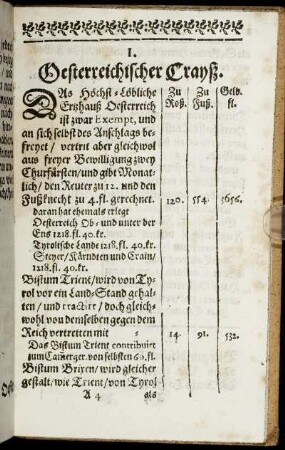 I.
Oesterreichischer Crayß.
DAs Höchst-Löbliche Zu Zu Geld.
Ertzhauß Oesterreich Roß. Fuß. fl.
ist zwar Exempt, und
an sich selbst des Anschlags be-
freyet / vertrit aber gleichwol
aus freyer Bewilligung zwey
Churfürsten/und gibt Monat-
lich / den Reuter zu 12. und den
Fußknecht zu 4.fl. gerechnet. 120. 554. 3656.
daran hat ehemals erlegt
Oesterreich Ob- und unter der
Ens 1218.fl. 40.kr.
Tyrolische Lande 1218.fl. 40.kr.
Steyer/Kärndten und Crain/
1218.fl. 40.kr.
Bistum Trient/wird von Ty-
rol vor ein Land-Stand gehal-
ten / und tractirt / doch gleich-
wohl von denselben gegen dem
Reich vertretten mit 14. 91. 532.
Das Bistum Trient contribuirt
zum Cam̃erger. von selbsten 60.fl.
Bistum Brixen/wird gleicher
gestalt/wie Trient/von Tyrol
A 4 als